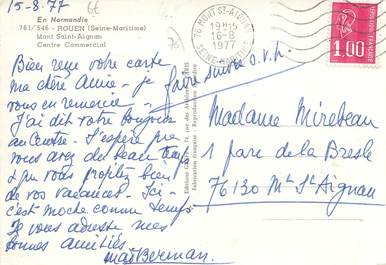 15-8-77
En Normandie
761/546 - ROUEN (Seine-Maritime)
Mont Saint-Aignan
Centre Commercial
76 MONT-ST-AIGNAN
19H15
16-8
1977
SEINE-MARITIME
1,00
Bien reçu votre carte
ma chère Amie. Je
vous en remercie.
J'ai dit votre bonjour
au Centre. J'espère que
vous avez du beau temps
et que vous profitez bien
de vos vacances. Ici
c'est moche comme temps.
Je vous adresse mes
bonnes amitiés
Mad Berman.
faire suivre S.V.P.
Madame Mirebeau
1 parc de la Bresle
76130 Mt St Aignan